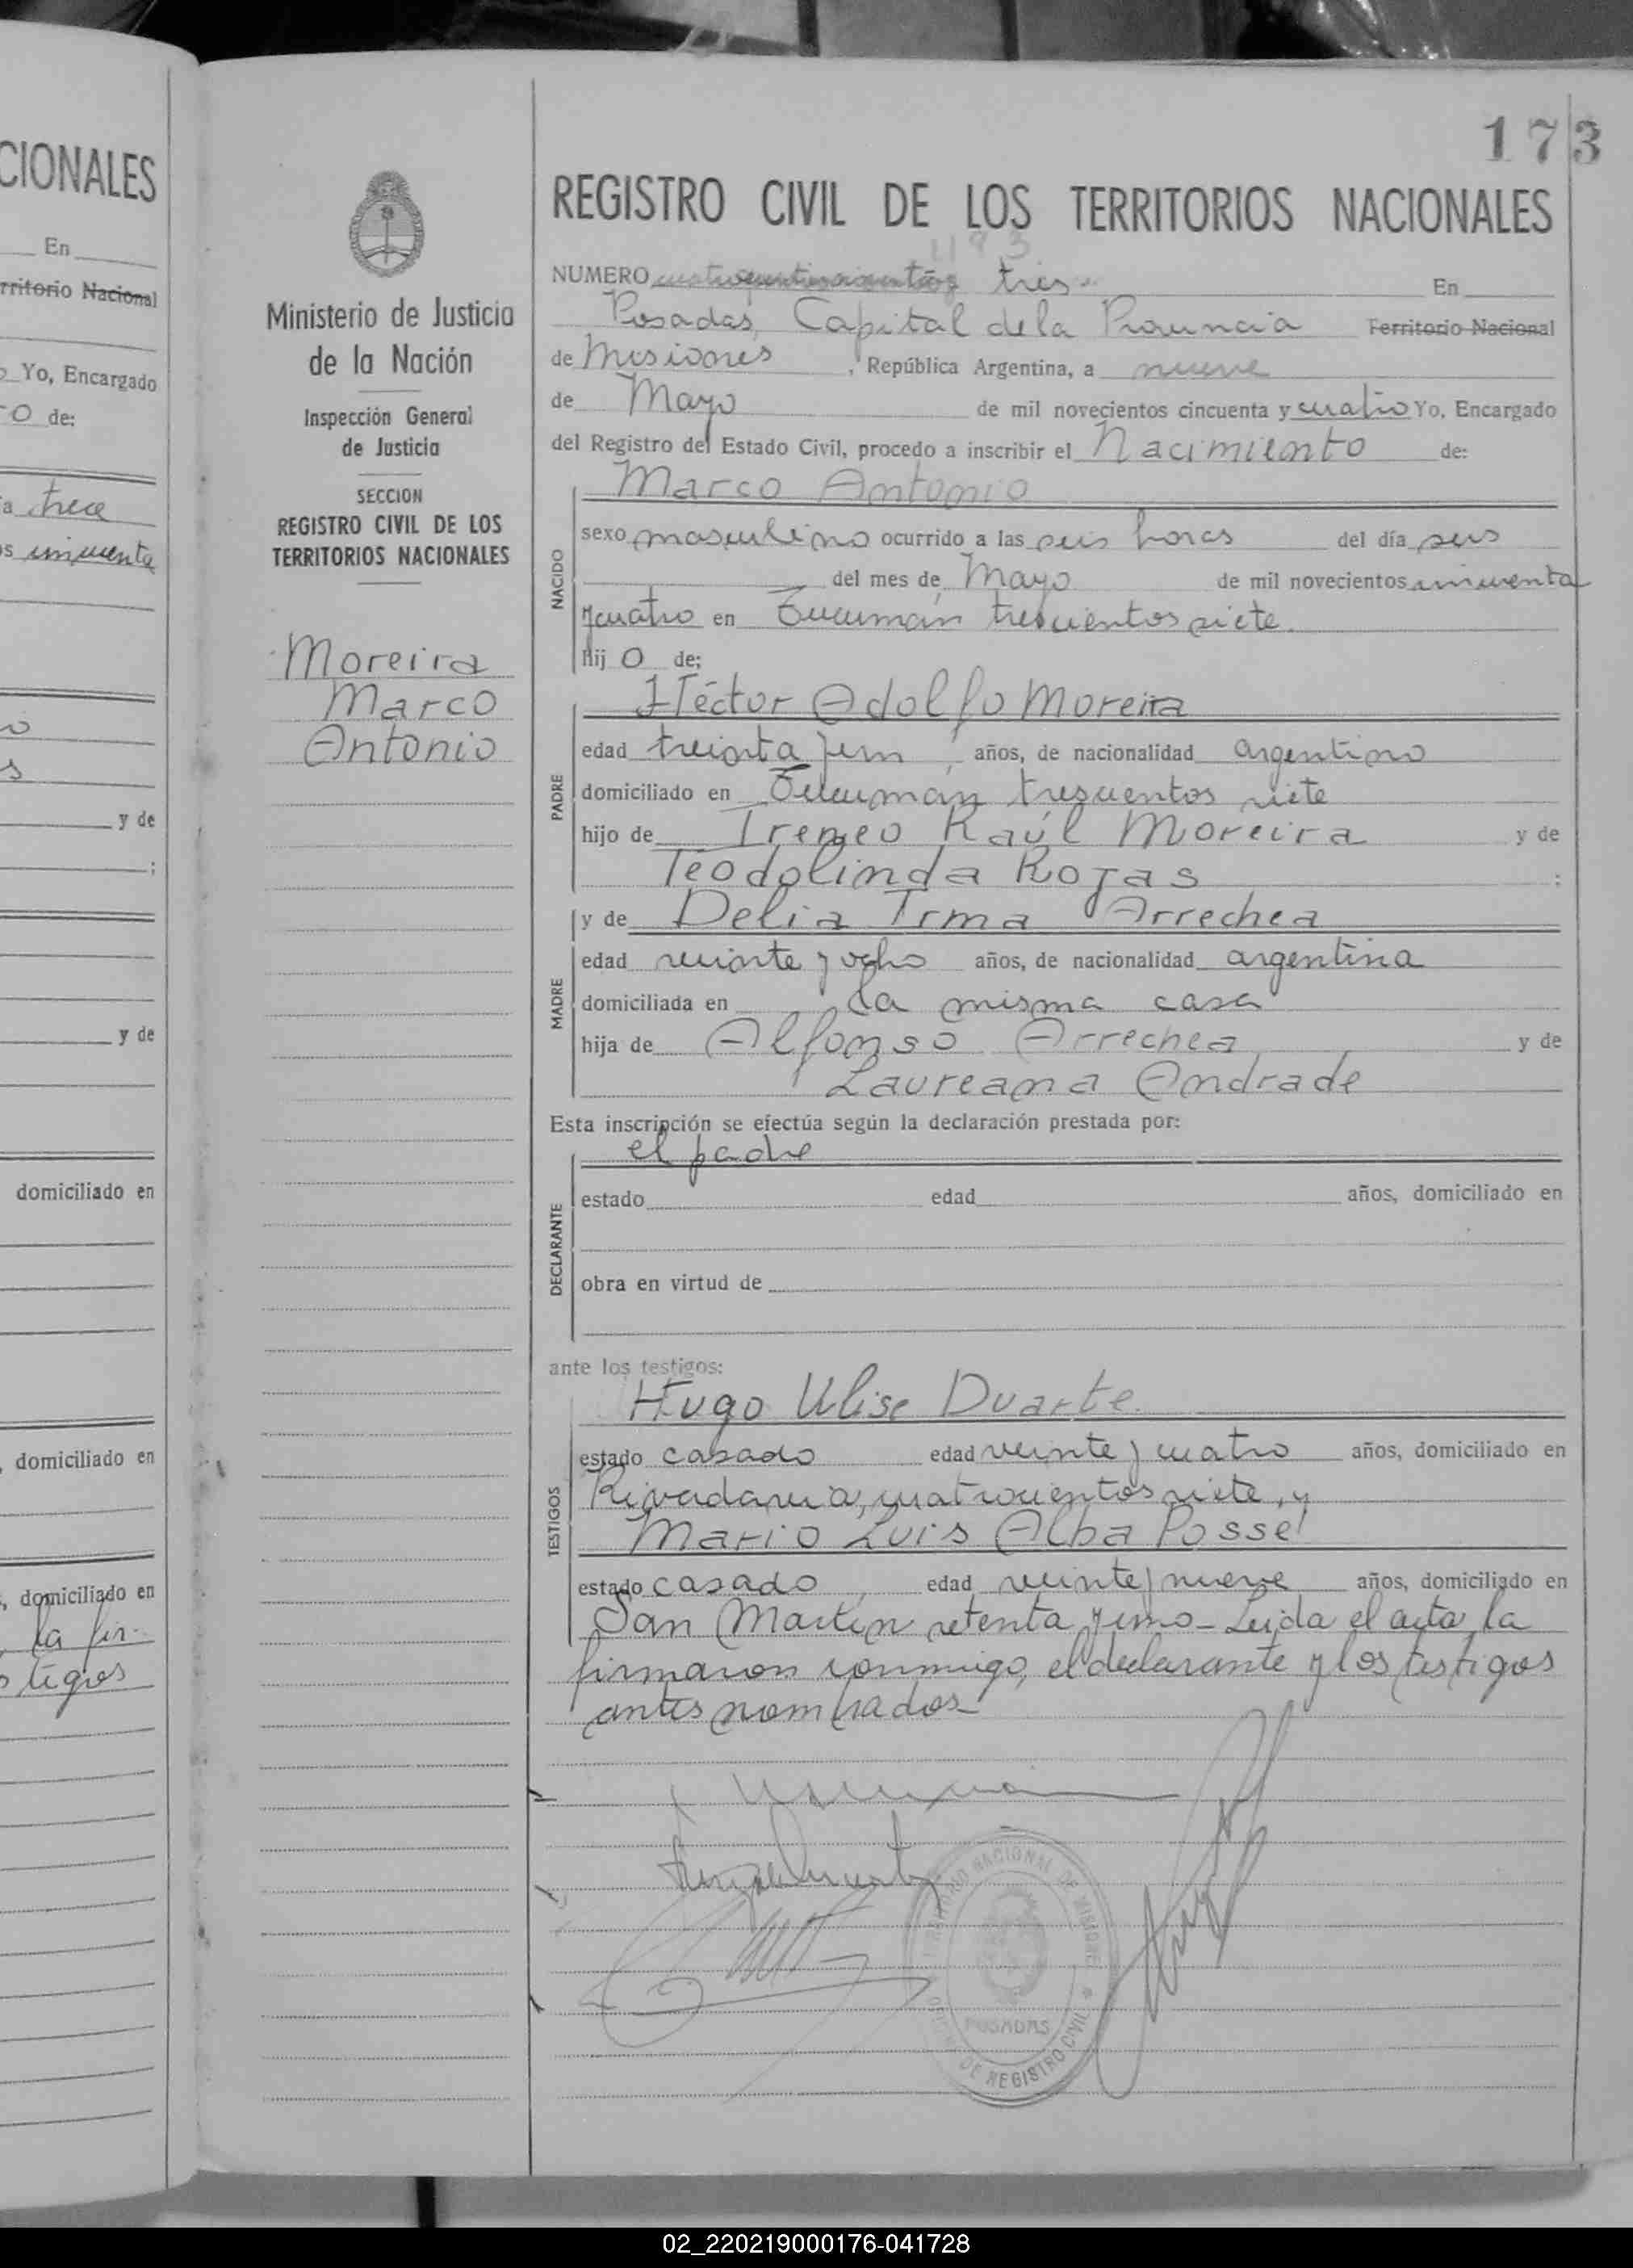 CIONALES
En
rritorio Nacional
Yo, Encargado
o de:
a trece
s cincuenta
y de
;
y de
domiciliado en
, domiciliado en
, domiciliado en
la fir-
tigos
Ministerio de Justicia
de la Nación
Inspección General
de Justicia
SECCION
REGISTRO CIVIL DE LOS
TERRITORIOS NACIONALES
Moreira
Marco
Antonio
173
REGISTRO CIVIL DE LOS TERRITORIOS NACIONALES
NUMERO tres En
Posadas, Capital de la Provincia Territorio Nacional
de Misiones, República Argentina, a nueve
de Mayo de mil novecientos cincuenta y cuatro Yo, Encargado
del Registro del Estado Civil, procedo a inscribir el Nacimiento de:
Marco Antonio
NACIDO
sexo masculino ocurrido a las seis horas del día seis
del mes de Mayo de mil novecientos cincuenta
y cuatro en Tucumán trescientos siete
hij o de:
Héctor Adolfo Moreira
PADRE
edad treinta y un años, de nacionalidad argentino
domiciliado en Tucumán trescientos siete
hijo de Ireneo Raúl Moreira y de
Teodolinda Rojas ;
y de Delia Irma Arrechea
MADRE
edad veinte y ocho años, de nacionalidad argentina
domiciliada en la misma casa
hija de Alfonso Arrechea y de
Laureana Andrade
Esta inscripción se efectúa según la declaración prestada por:
el padre
DECLARANTE
estado edad años, domiciliado en
obra en virtud de
ante los testigos:
Hugo Ulise Duarte
TESTIGOS
estado casado edad veinte y cuatro años, domiciliado en
Rivadavia, cuatrocientos siete, y
Mario Luis Alba Posse
estado casado edad veinte y nueve años, domiciliado en
San Martín setenta y uno - Leida el acta, la
firmaron conmigo, el declarante y los testigos
antes nombrados-
TERRITORIO NACIONAL DE MISIONES
POSADAS
DE REGISTRO CIVIL
02_220219000176-041728